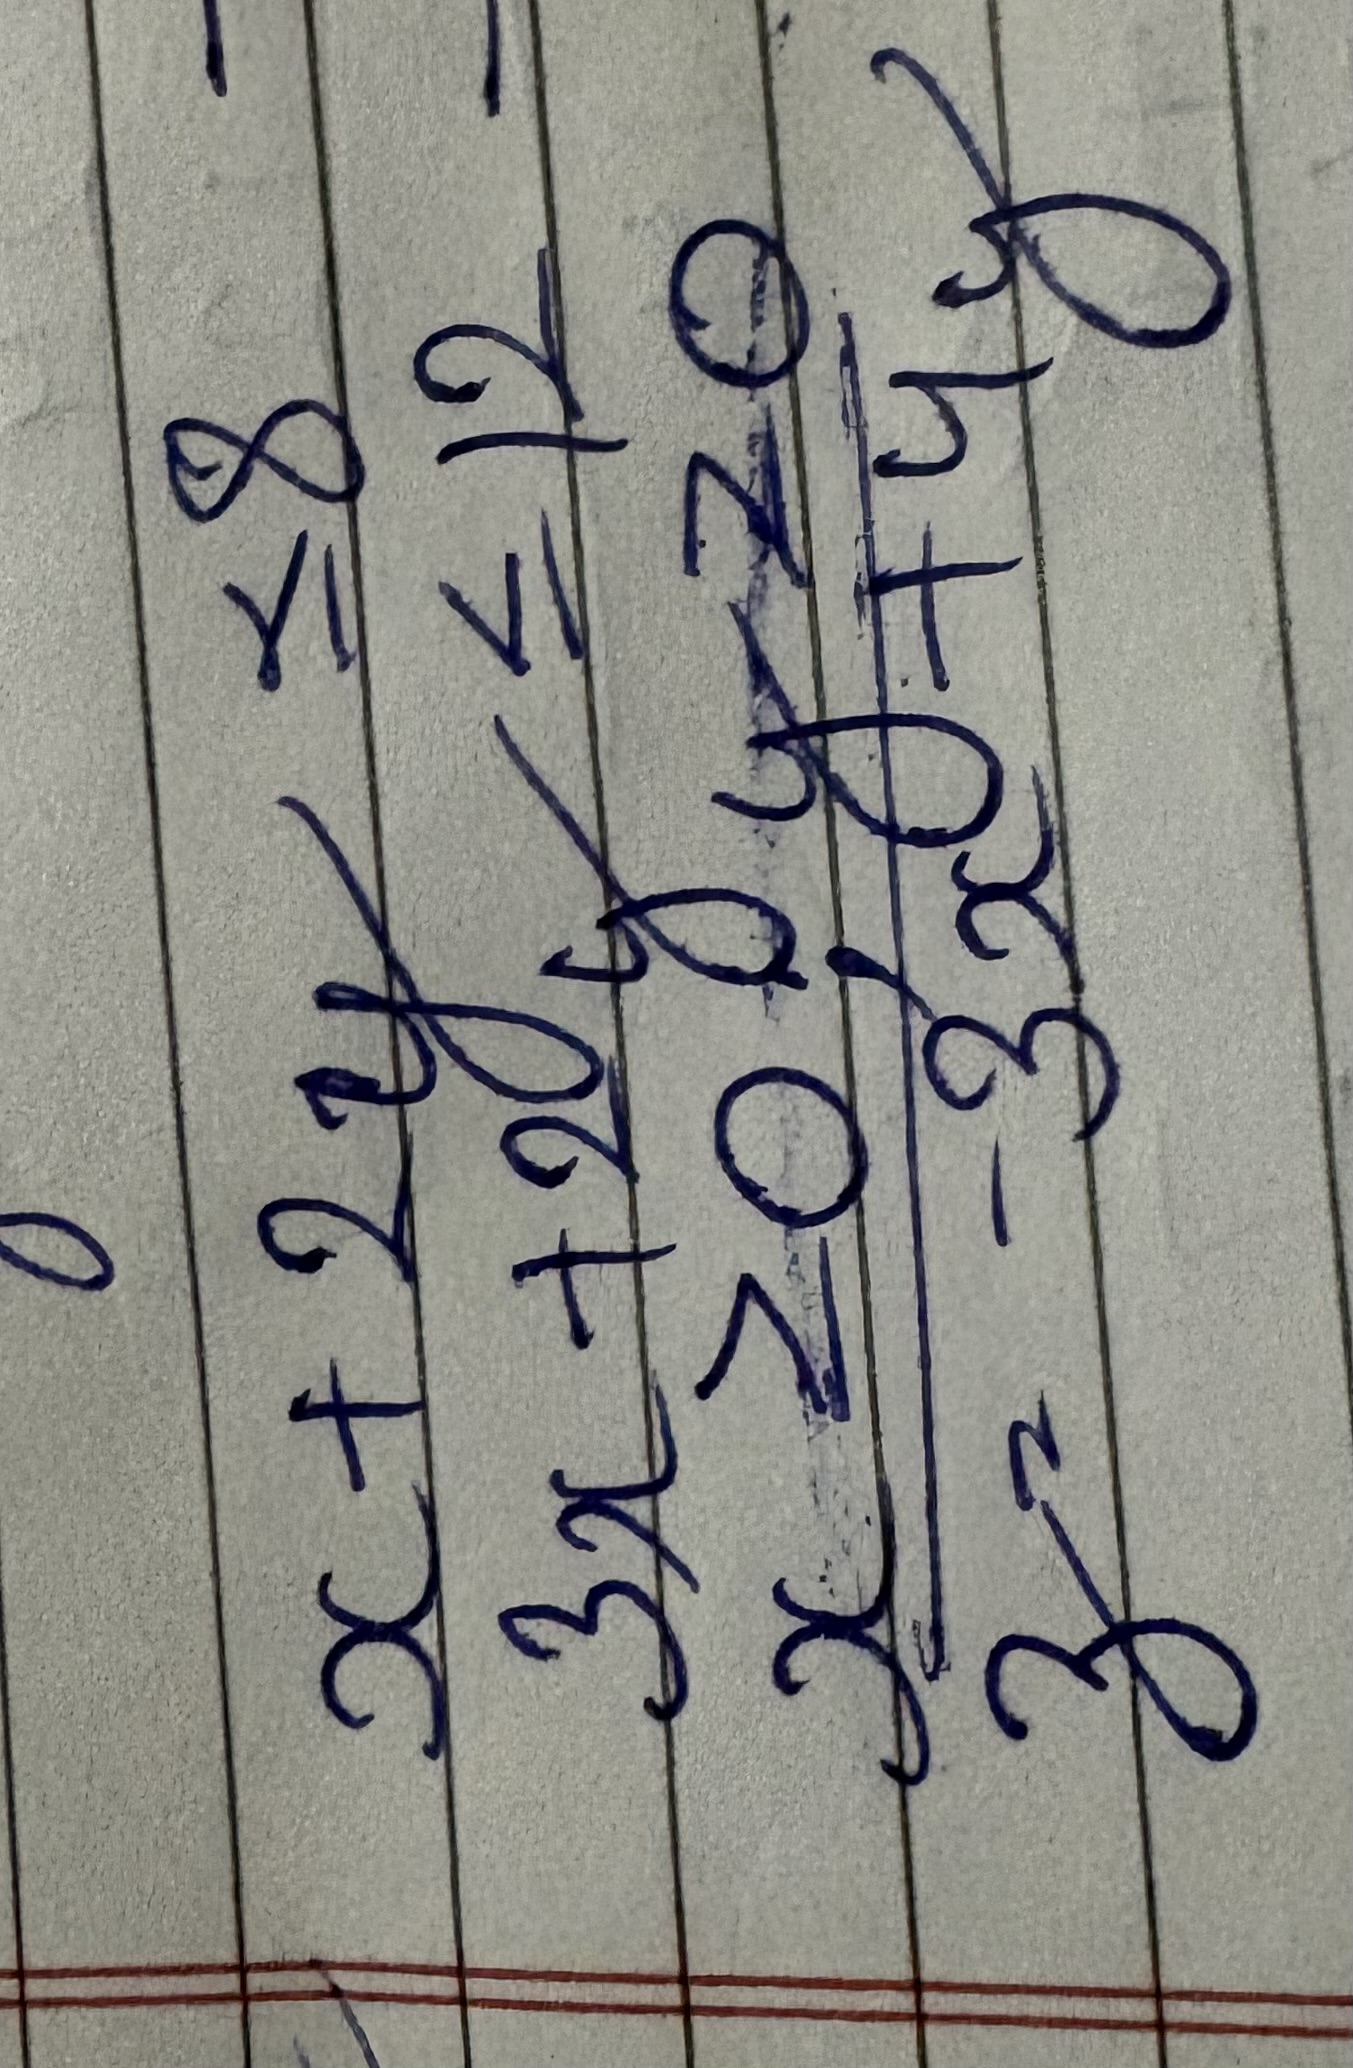 x + 2y ≤ 8
3x + 2y ≤ 12
x ≥ 0, y ≥ 0
z = -3x + 4y